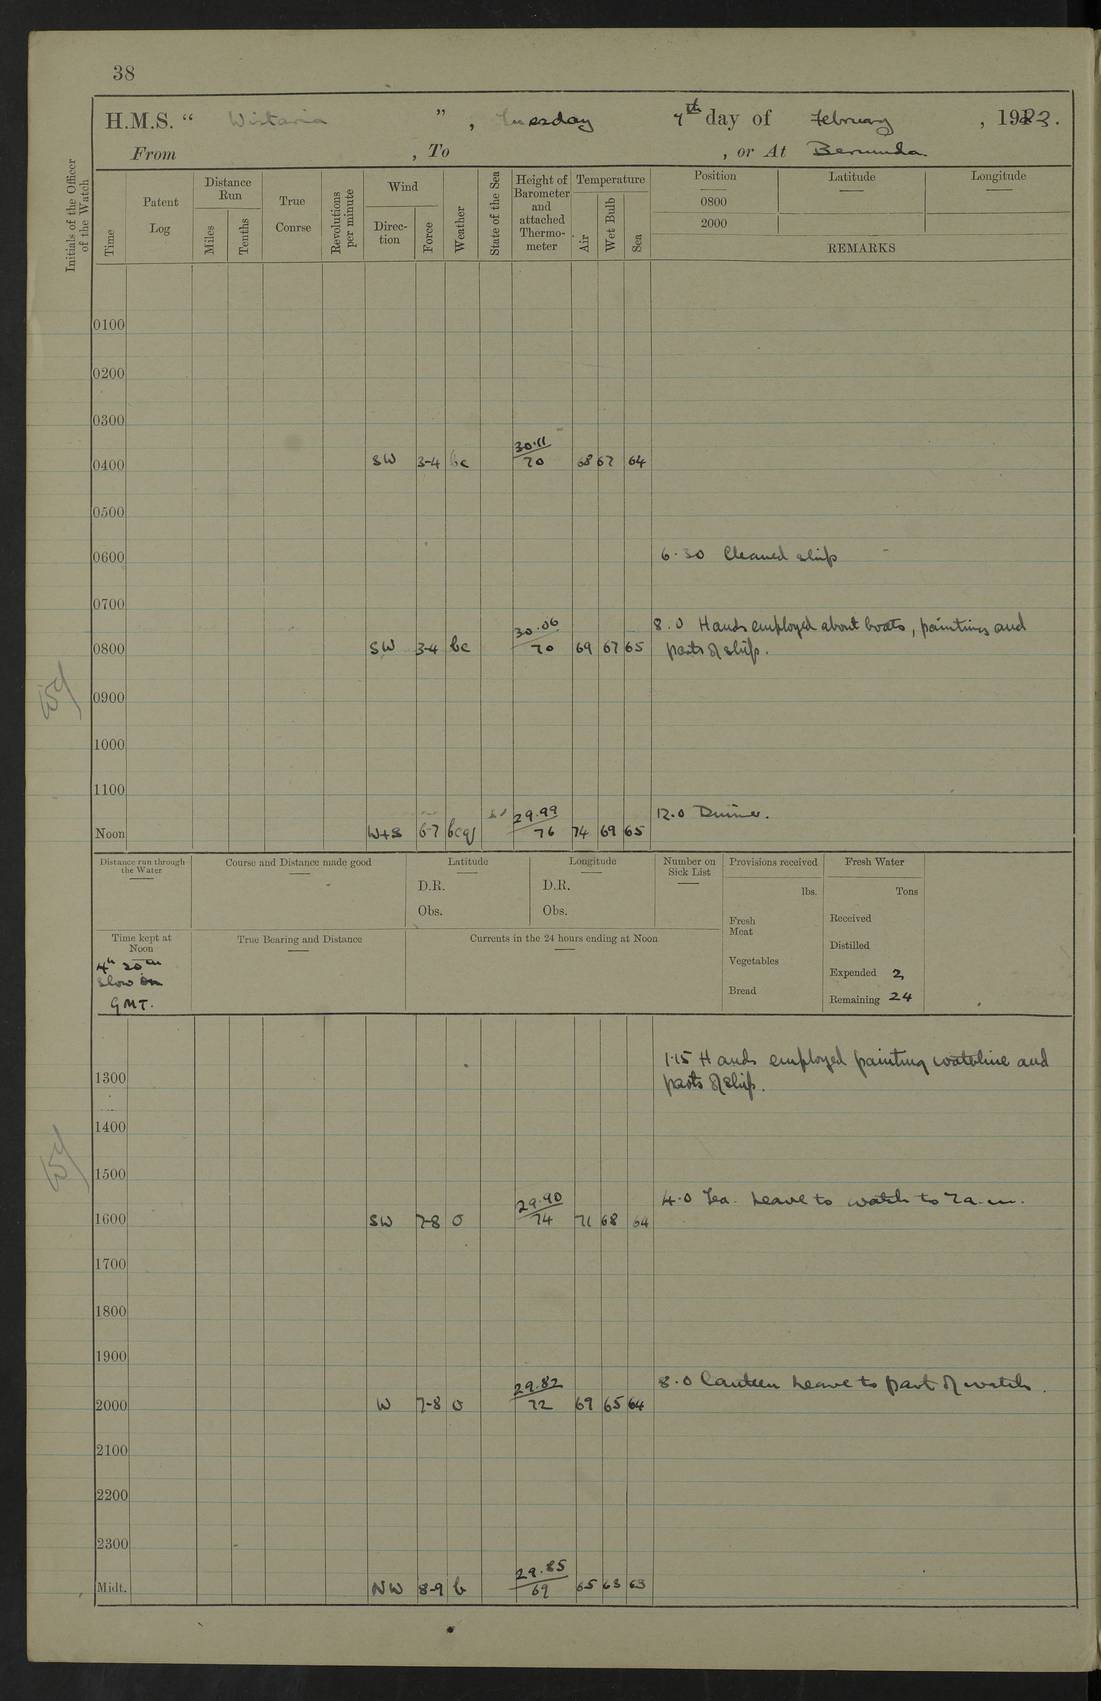 38
H.M.S. " Wistaria ", Tuesday 7th day of February, 1923.
From , To , or At Bermuda
Initials of the Officer of the Watch
Time
Patent Log
Distance Run
Miles
Tenths
True Course
Revolutions per minute
Wind
Direction
Force
Weather
State of the Sea
Height of Barometer and attached Thermometer
Temperature
Air
Wet Bulb
Sea
Position Latitude Longitude
0800
2000
REMARKS
0100
0200
0300
30.11
0400 SW 3-4 bc 70 68 67 64
0500
0600 6.30 Cleaned ship
0700
30.06 8.0 Hands employed about boats, painting and
0800 SW 3-4 bc 70 69 67 65 parts of ship.
0900
1000
1100
29.99 12.0 Dinner.
Noon W+S 6-7 bcq 76 74 69 65
Distance run through the Water
Course and Distance made good
Latitude
D.R.
Obs.
Longitude
D.R.
Obs.
Number on Sick List
Provisions received
lbs.
Fresh Meat
Vegetables
Bread
Fresh Water
Tons
Received
Distilled
Expended 2
Remaining 24
Time kept at Noon
4h 20m
slow on
GMT.
True Bearing and Distance
Currents in the 24 hours ending at Noon
1.15 Hands employed painting waterline and
1300 parts of ship.
1400
1500
29.90 4.0 Tea. Leave to watch to 7 a.m.
1600 SW 7-8 o 74 71 68 64
1700
1800
1900
29.82 8.0 Canteen Leave to part of watch.
2000 W 7-8 o 72 69 65 64
2100
2200
2300
29.85
Midt. NW 8-9 b 69 65 63 63